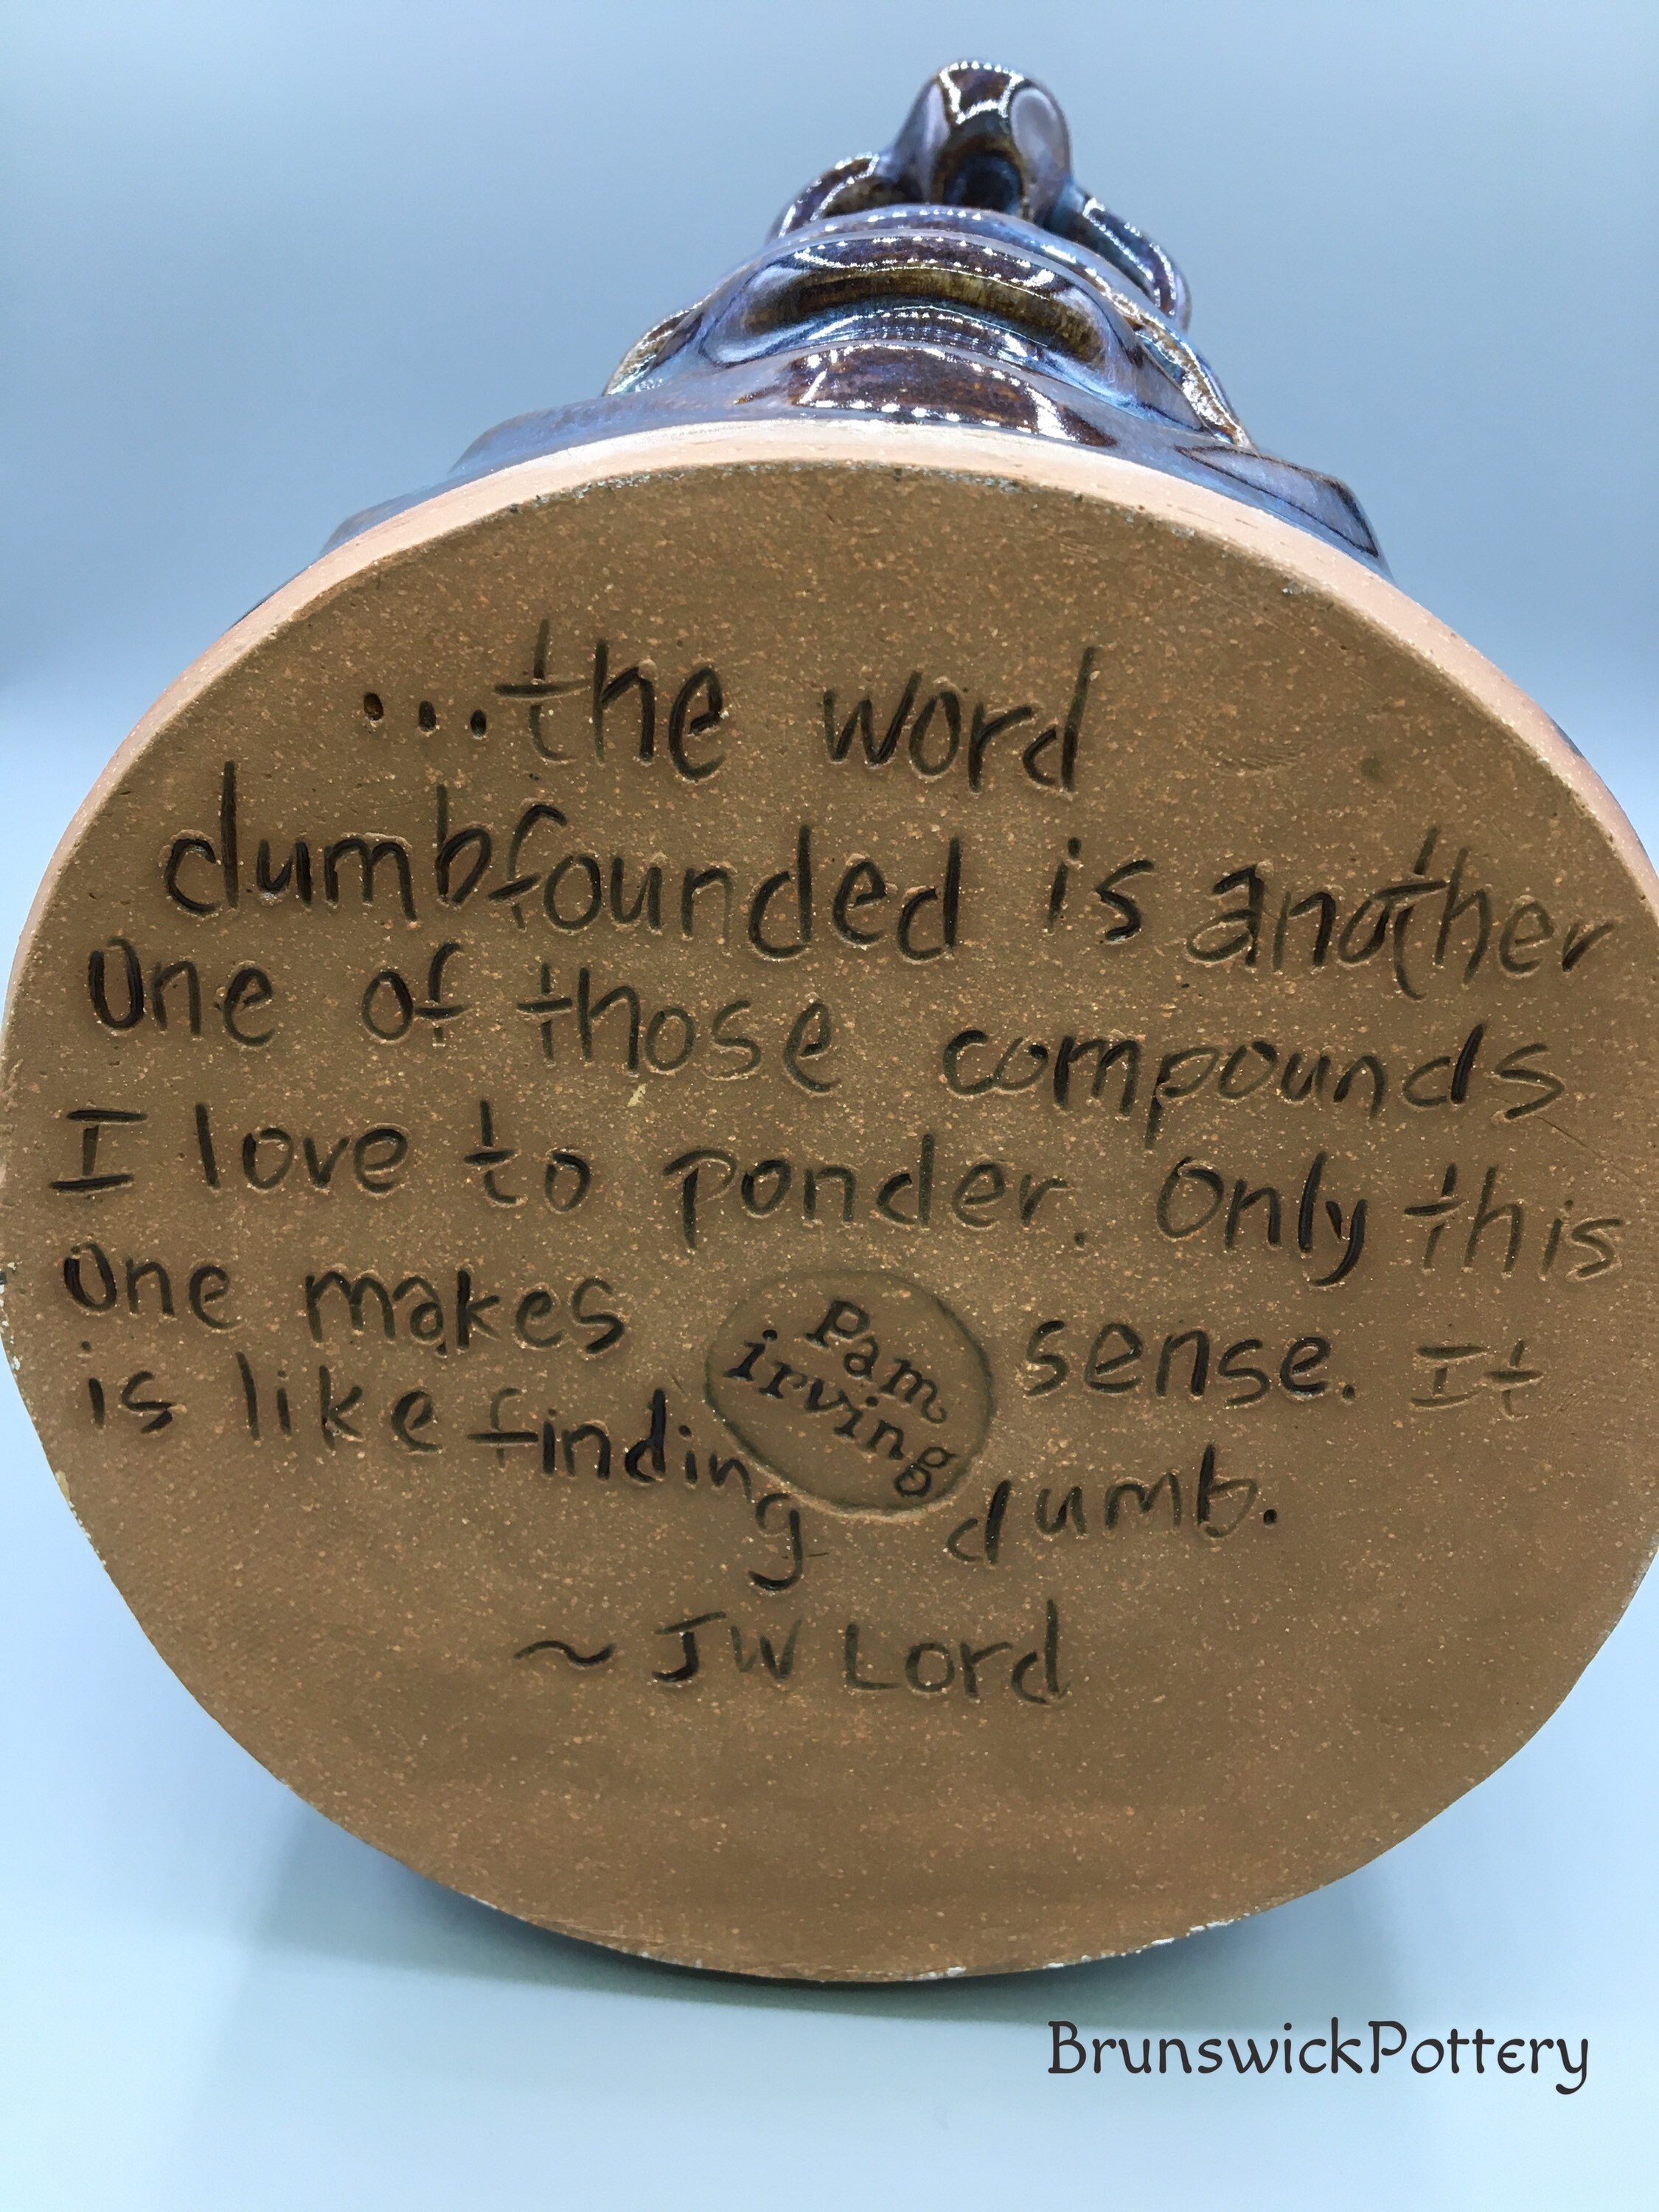 ...the word
dumbfounded is another
one of those compounds
I love to ponder. Only this
one makes sense. It
is like finding dumb.
~ JW Lord
Pam
irving
BrunswickPottery